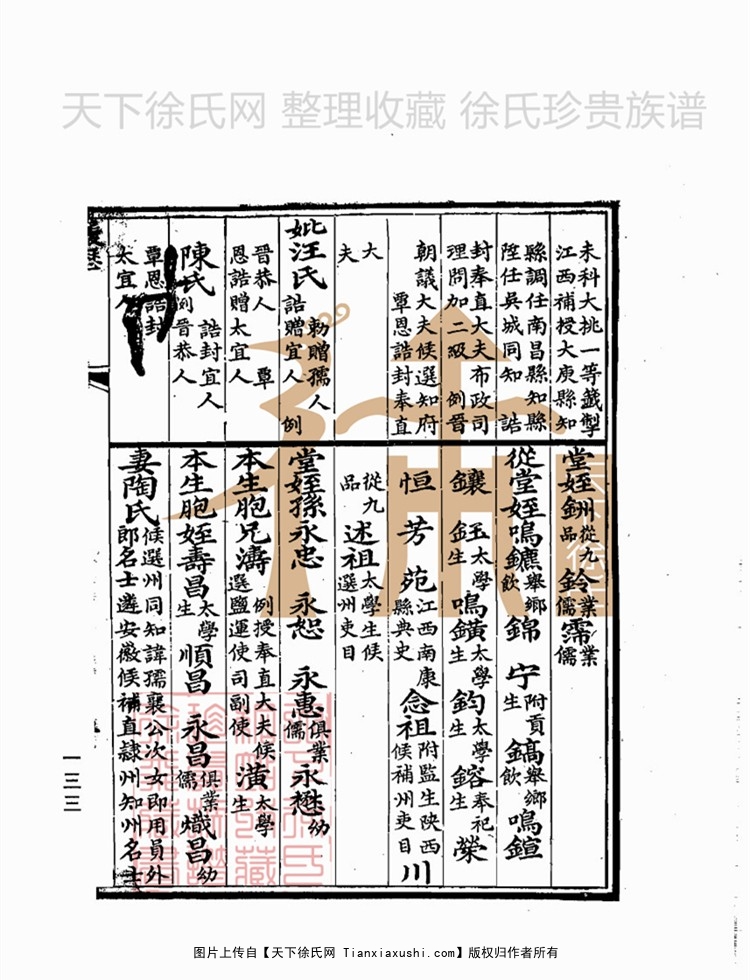 天下徐氏网 整理收藏 徐氏珍贵族谱
未科大挑一等籤掣
江西補授大庾縣知
縣調任南昌縣知縣
陞任吳城同知 誥
封奉直大夫布政司
理問加二級 例晉
朝議大夫候選知府
覃恩誥封奉直
大
夫
妣汪氏 勅贈孺人
誥贈宜人 例
晉恭人 覃
恩誥贈太宜人
陳氏 誥封宜人
例晉恭人
覃恩誥封
太宜人
堂姪釧從九品 鈴業儒 霈業儒
從堂姪鳴鑣舉鄉飲 錦 宁附貢生 鎬舉鄉飲 鳴鍹
鑲 鈺太學生 鳴鐄太學生 鈞太學生 鎔奉祀生 榮
恒 芳 苑江西南康縣典史 念祖附監生陝西候補州吏目 川
從九品 述祖太學生候選州吏目
堂姪孫永忠 永恕 永惠俱業儒 永懋幼
本生胞兄濤例授奉直大夫候選鹽運使司副使 潢太學生
本生胞姪壽昌太學生 順昌 永昌俱業儒 熾昌幼
妻陶氏候選州同知諱孺襄公次女即用員外
郎名士遴安徽候補直隸州知州名士
一三三
图片上传自【天下徐氏网 Tianxiaxushi.com】版权归作者所有